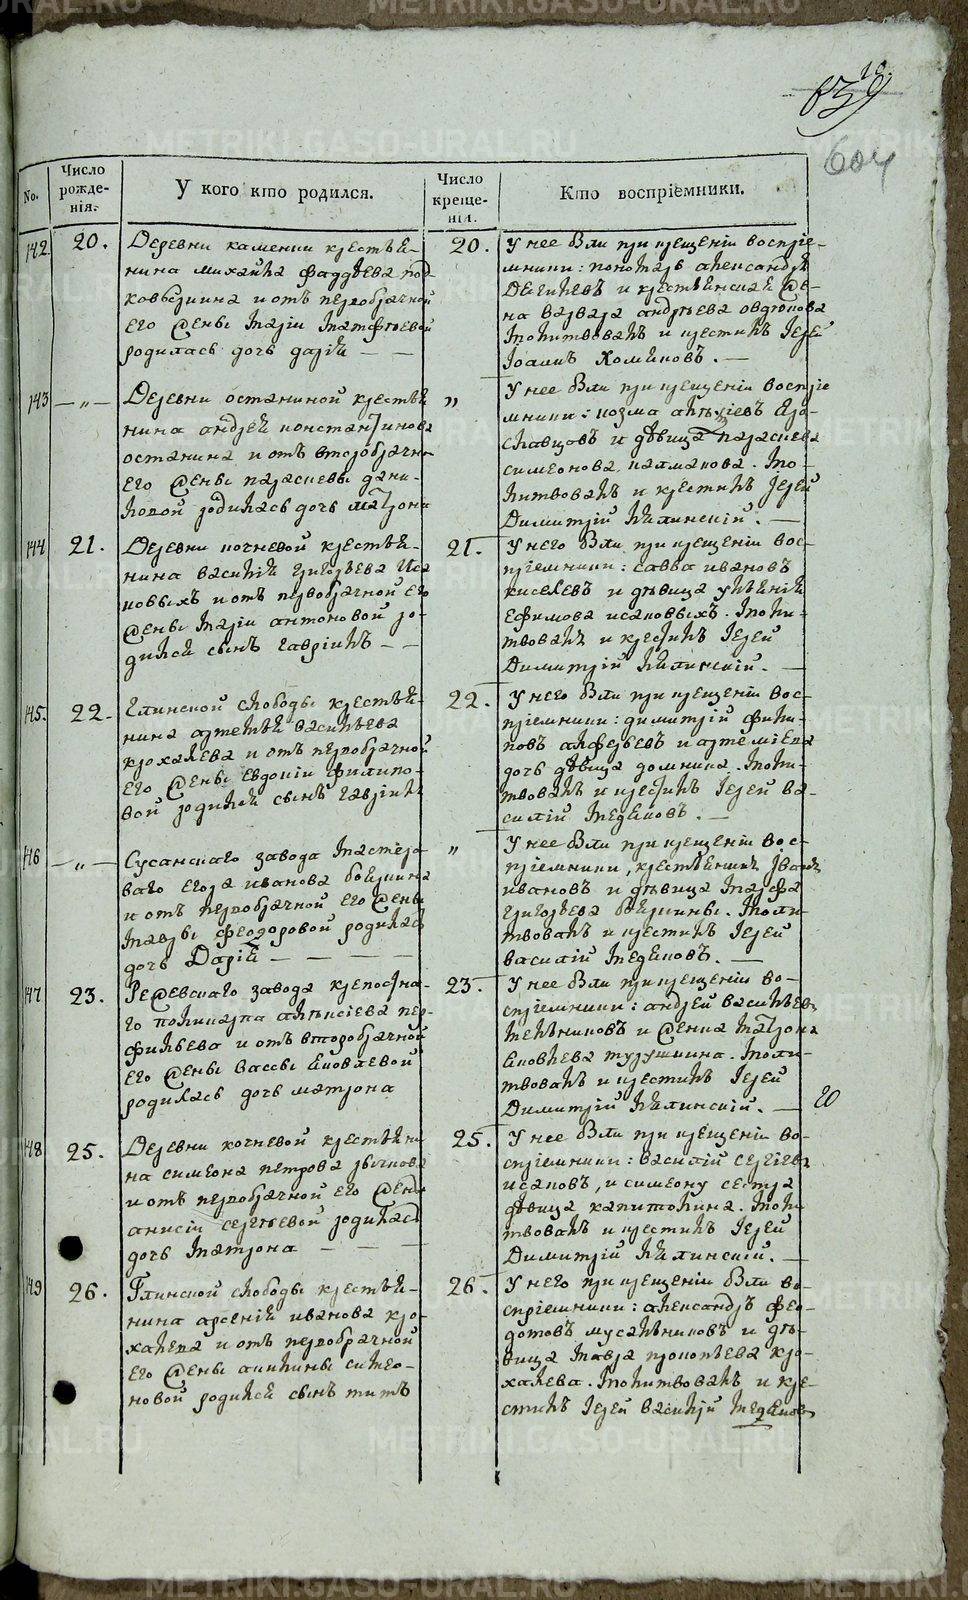 639
604
No.
Число рожде-нія.
У кого кто родился.
Число креще-нія.
Кто воспріемники.
142
20.
Деревни каменки крестья-
нина михаила фаддѣева
и отъ первобрачной
его жены маріи
родилась дочь дарія — —
20.
У нее были при крещеніи воспріе-
мники: пономарь александръ
и крестьянская же-
на варвара андреева
молитвовалъ и крестилъ Іерей
Іоаннъ Хомяковъ. —
143
— „ —
Деревни останиной крестья
нина андрей константинова
останина и отъ второбрачно
его жены параскевы дани-
ловой родилась дочь матрона
„
У нее были при крещеніи воспріе
мники: козма алексіевъ
и дѣвица параскева
симеонова калмакова. мо-
литвовалъ и крестилъ Іерей
Димитрій —
144
21.
Деревни кочневой крестья-
нина василія григорьева иса
ковыхъ и отъ первобрачной его
жены маріи антоновой ро-
дился сынъ гавріилъ — —
21.
У него были при крещеніи вос-
пріемники: савва ивановъ
киселевъ и дѣвица
Ефимова исаковыхъ. моли-
твовалъ и крестилъ Іерей
Димитрій —
145.
22.
Глинской слободы крестья-
нина артемія василѣева
крохалева и отъ первобрачной
его жены евдокіи филипо-
вой родился сынъ гавріилъ
22.
У него были при крещеніи вос-
пріемники: димитрій фили-
повъ алферьевъ и артеміева
дочь дѣвица домника. моли-
твовалъ и крестилъ Іерей ва-
силій —
146
— „ —
Сусанскаго завода мастеро-
ваго егора иванова
и отъ первобрачной его жены
мавры феодоровой родилась
дочь Дарія — — — —
„
У нее были при крещеніи вос-
пріемники, крестьянинъ Іванъ
ивановъ и дѣвица марфа
григорьева моли-
твовалъ и крестилъ Іерей
василій —
147
23.
Режевскаго завода крепостна-
го поликарпа алексіева пер-
фильева и отъ второбрачной
его жены вассы яковлевой
родилась дочь матрона
23.
У нее были при крещеніи во-
спріемники: андрей василѣевъ
мельниковъ и женка матрона
яковлева моли-
твовалъ и крестилъ Іерей
Димитрій —
20
148
25.
Деревни кочневой крестьяни
на симеона петрова
и отъ первобрачной его жены
анисіи сергѣевой родилась
дочь матрона — — —
25.
У нее были при крещеніи во-
спріемники: василій сергіевъ
исаковъ, и симеону сестра
дѣвица капитолина. моли-
твовалъ и крестилъ Іерей
Димитрій —
149
26.
Глинской слободы крестья-
нина арсеній иванова кро-
халева и отъ первобрачной
его жены акилины симео-
новой родился сынъ титъ
26.
У него при крещеніи были во-
спріемники: александръ фео-
дотовъ мусальниковъ и дѣ-
вица мавра прокопьева кро-
халева. молитвовалъ и кре-
стилъ Іерей василій